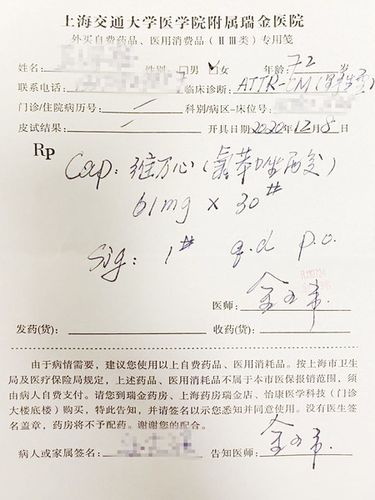 上海交通大学医学院附属瑞金医院
外买自费药品、医用消费品（ⅡⅢ类）专用笺
姓名： 性别：□男 □女 年龄：72 岁
联系电话： 临床诊断：ATTR-CM
门诊/住院病历号： 科别/病区-床位号：
皮试结果： 开具日期2020年12月8日
Rp
Cap：维万心（氯苯唑酸）
61mg × 30#
Sig: 1# q.d p.o.
医师：
发药(货)： 收药(货)：
由于病情需要，建议您使用以上自费药品、医用消耗品。按上海市卫生
局及医疗保险局规定，上述药品、医用消耗品不属于本市医保报销范围，须
由病人自费支付。请您到瑞金药房、上海药房瑞金店、怡康医学科技（门诊
大楼底楼）购买，特此告知，并请签名以示您悉知并同意使用。没有医生签
名盖章，药房将不予配药。谢谢您的配合。
病人或家属签名： 告知医师：